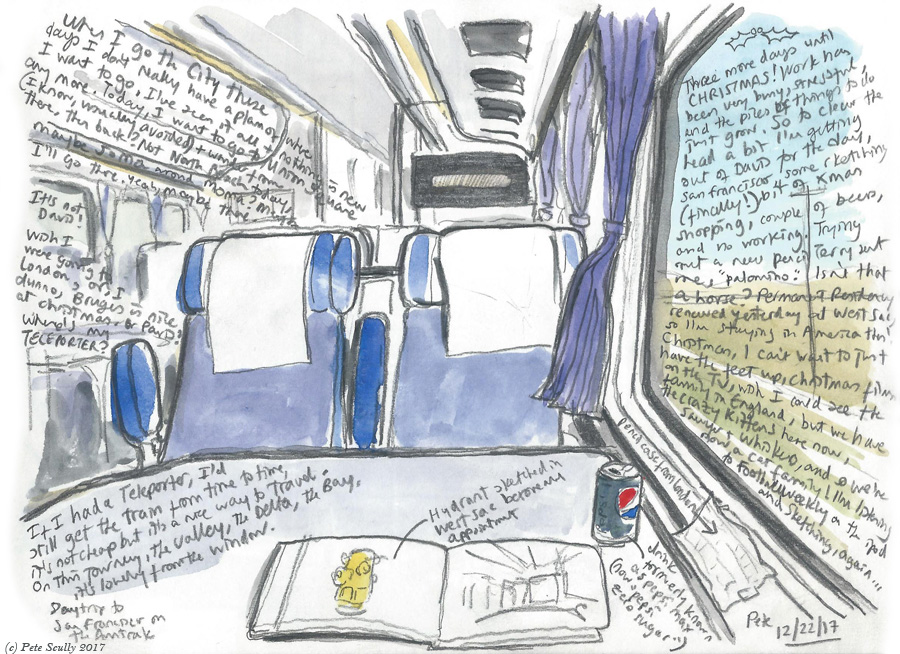 When I go th City these
days I don't really have a plan of where
I want to go, I've seen it all, nothing is new
any more. Today, I want to go to Union Square
(I know, usually avoided)
there, then back? Not North Beach today,
maybe Soma
I'll go there. Yeah, maybe there.
It's not
Davis!
Wish I
were going to
London, or, I
dunno, Bruges is nice
at christmas, or Paris!
Where's my
TELEPORTER?
If I had a Teleporter, I'd
still get the train from time to time,
it's not cheap but it's a nice way to travel.
On this journey, the valley, the Delta, the Bay,
it's lovely from the window.
Daytrip to
San Francisco on
the Amtrak
Hydrant sketched in
West Sac before my
appointment
Three more days until
CHRISTMAS! Work has
been very busy, stressful,
and the piles of things to do
just grow. So to clear the
head a bit I'm getting
out of Davis for the day,
San Francisco, some sketching
(finally!) bit of Xmas
shopping, couple of beers,
and no working. Trying
out a new pencil Terry sent
me, "palomino". Isn't that
a horse? Permanent Residency
renewed yesterday in West Sac
so I'm staying in America this
Christmas, I can't wait to just
have the feet up, christmas films
on the TV, wish I could see the
family in England, but we have
the crazy kittens here now,
Sawyer, Whiskey, and so we're
now a cat family. I'm listening
to football weekly on the ipod
and sketching, again...
pencil case from London
drink
formerly known
as pepsi max
(now "pepsi
zero sugar")
Pete
12/22/17
(c) Pete Scully 2017